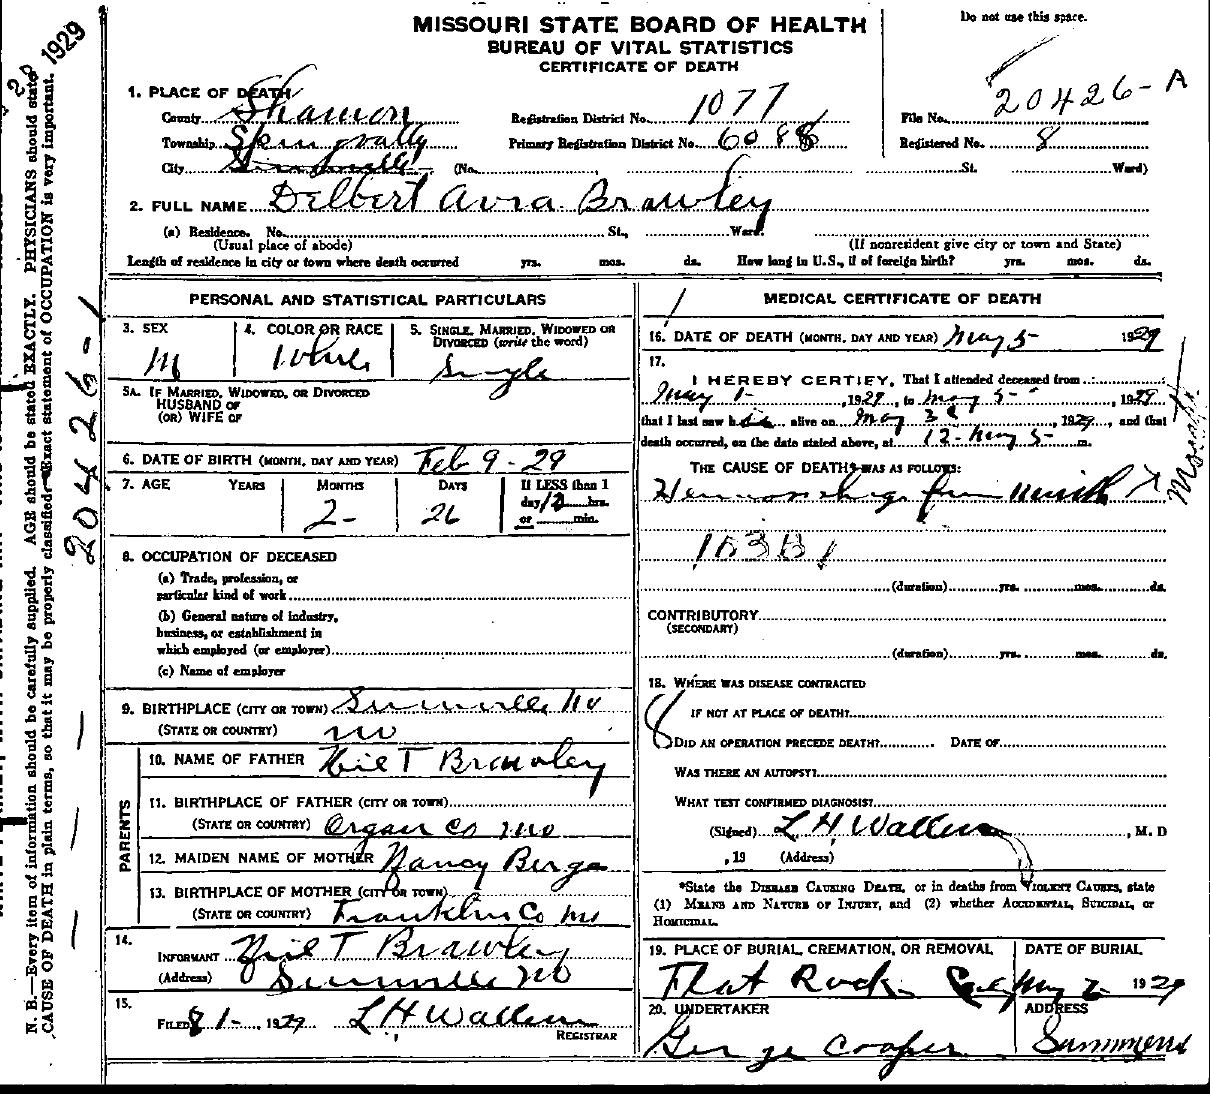 MISSOURI STATE BOARD OF HEALTH
BUREAU OF VITAL STATISTICS
CERTIFICATE OF DEATH
Do not use this space.
1. PLACE OF DEATH
County Shannon Registration District No. 1077 File No. 20426-A
Township Spring Valley Primary Registration District No. 6088 Registered No. 8
City (No. St. Ward)
2. FULL NAME Delbert Avra Brawley
(a) Residence. No. St., Ward.
(Usual place of abode) (If nonresident give city or town and State)
Length of residence in city or town where death occurred yrs. mos. ds. How long in U.S., if of foreign birth? yrs. mos. ds.
PERSONAL AND STATISTICAL PARTICULARS
3. SEX 4. COLOR OR RACE 5. SINGLE, MARRIED, WIDOWED OR DIVORCED (write the word)
M White Single
5A. IF MARRIED, WIDOWED, OR DIVORCED
HUSBAND OF
(OR) WIFE OF
6. DATE OF BIRTH (MONTH, DAY AND YEAR) Feb 9 - 29
7. AGE YEARS MONTHS DAYS If LESS than 1
2- 26 day, 12 hrs.
or min.
8. OCCUPATION OF DECEASED
(a) Trade, profession, or
particular kind of work
(b) General nature of industry,
business, or establishment in
which employed (or employer)
(c) Name of employer
9. BIRTHPLACE (CITY OR TOWN) Mo
(STATE OR COUNTRY) Mo
PARENTS
10. NAME OF FATHER T Brawley
11. BIRTHPLACE OF FATHER (CITY OR TOWN)
(STATE OR COUNTRY) Organ Co Mo
12. MAIDEN NAME OF MOTHER Nancy Berge
13. BIRTHPLACE OF MOTHER (CITY OR TOWN)
(STATE OR COUNTRY) Franklin Co Mo
14.
INFORMANT T Brawley
(Address) Mo
15.
FILED 1- 1929 L H Wallen
REGISTRAR
MEDICAL CERTIFICATE OF DEATH
16. DATE OF DEATH (MONTH, DAY AND YEAR) May 5- 1929
17.
I HEREBY CERTIFY, That I attended deceased from
May 1- , 1929, to May 5- , 1929
that I last saw h alive on May 3 , 1929, and that
death occurred, on the date stated above, at 12- May 5- m.
THE CAUSE OF DEATH* WAS AS FOLLOWS:
from
(duration) yrs. mos. ds.
CONTRIBUTORY
(SECONDARY)
(duration) yrs. mos. ds.
18. WHERE WAS DISEASE CONTRACTED
IF NOT AT PLACE OF DEATH?
DID AN OPERATION PRECEDE DEATH? DATE OF
WAS THERE AN AUTOPSY?
WHAT TEST CONFIRMED DIAGNOSIS?
(Signed) L H Wallen , M. D
, 19 (Address)
*State the DISEASE CAUSING DEATH, or in deaths from VIOLENT CAUSES, state
(1) MEANS AND NATURE OF INJURY, and (2) whether ACCIDENTAL, SUICIDAL, or
HOMICIDAL.
19. PLACE OF BURIAL, CREMATION, OR REMOVAL DATE OF BURIAL
Flat Rock May 1929
20. UNDERTAKER ADDRESS
George Cooper
N. B.—Every item of information should be carefully supplied. AGE should be stated EXACTLY. PHYSICIANS should state
CAUSE OF DEATH in plain terms, so that it may be properly classified. Exact statement of OCCUPATION is very important.
20426-1
20 1929